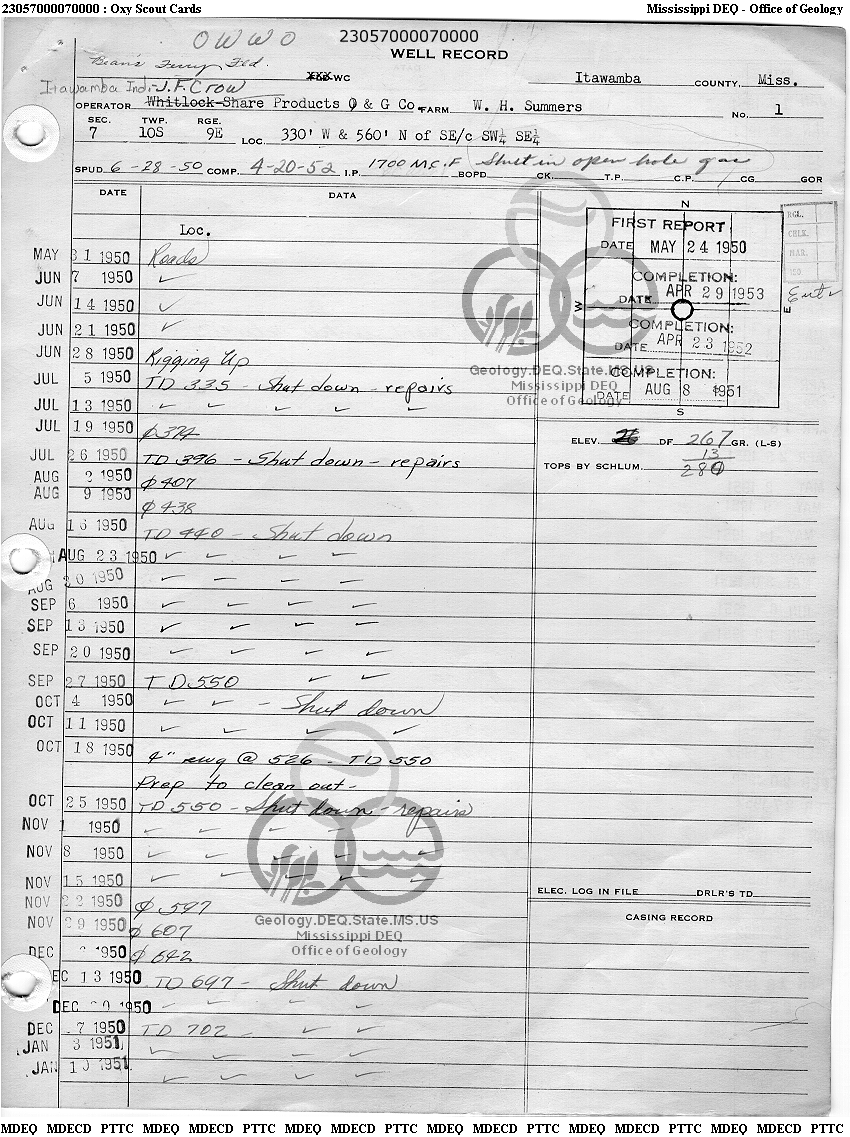 23057000070000 : Oxy Scout Cards Mississippi DEQ - Office of Geology
OWWO 23057000070000
WELL RECORD
Bean's Ferry Fld.
XXX WC Itawamba COUNTY, Miss.
Itawamba Ind. J.F. Crow
OPERATOR Whitlock-Share Products O & G Co. FARM W. H. Summers NO. 1
SEC. TWP. RGE.
7 10S 9E LOC. 330' W & 560' N of SE/c SW¼ SE¼
SPUD 6-28-50 COMP. 4-20-52 I.P. 1700 M.C.F Shut in open hole gas
BOPD CK. T.P. C.P. CG GOR
DATE DATA
Loc.
MAY 31 1950 Roads
JUN 7 1950 ✓
JUN 14 1950 ✓
JUN 21 1950 ✓
JUN 28 1950 Rigging Up
JUL 5 1950 TD 335 - Shut down - repairs
JUL 13 1950 ✓ ✓ ✓ ✓ ✓
JUL 19 1950 Ø 374
JUL 26 1950 TD 396 - Shut down - repairs
AUG 2 1950 Ø 407
AUG 9 1950 Ø 438
AUG 16 1950 TD 440 - Shut down
AUG 23 1950 ✓ ✓ ✓ ✓
AUG 30 1950 ✓ ✓ ✓ ✓
SEP 6 1950 ✓ ✓ ✓ ✓
SEP 13 1950 ✓ ✓ ✓ ✓
SEP 20 1950 ✓ ✓ ✓ ✓
SEP 27 1950 TD 550 ✓ ✓
OCT 4 1950 ✓ ✓ - Shut down
OCT 11 1950 ✓ ✓ ✓ ✓
OCT 18 1950 4" @ 526 - TD 550
Prep to clean out -
OCT 25 1950 TD 550 - Shut down - repairs
NOV 1 1950 ✓ ✓ ✓ ✓
NOV 8 1950 ✓ ✓ ✓ ✓ ✓
NOV 15 1950 ✓ ✓ ✓ ✓ ✓
NOV 22 1950 Ø 597
NOV 29 1950 Ø 607
DEC 1950 Ø 642
DEC 13 1950 TD 697 - Shut down
DEC 20 1950 ✓ ✓ ✓ ✓
DEC 27 1950 TD 702 ✓ ✓
JAN 3 1951 ✓ ✓ ✓ ✓
JAN 10 1951 ✓ ✓ ✓ ✓
N
FIRST REPORT
DATE MAY 24 1950
COMPLETION:
DATE APR 29 1953
W E
COMPLETION:
DATE APR 23 1952
COMPLETION:
DATE AUG 8 1951
S
RGL.
CHLK.
MAR.
ISO.
ELEV. DF 267 GR. (L-S)
13
TOPS BY SCHLUM. 280
Geology.DEQ.State.MS.US
Mississippi DEQ
Office of Geology
ELEC. LOG IN FILE DRLR'S TD
CASING RECORD
Geology.DEQ.State.MS.US
Mississippi DEQ
Office of Geology
MDEQ MDECD PTTC MDEQ MDECD PTTC MDEQ MDECD PTTC MDEQ MDECD PTTC MDEQ MDECD PTTC MDEQ MDECD PTTC